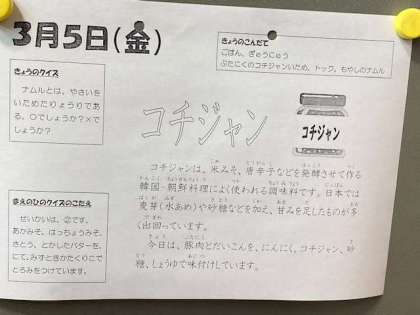 3月5日(金)
きょうのこんだて
ごはん、ぎゅうにゅう
ぶたにくのコチジャンいため、トック、もやしのナムル
きょうのクイズ
ナムルとは、やさいを
いためたりょうりであ
る。○でしょうか？×で
しょうか？
コチジャン
コチジャン
コチジャンは、米みそ、唐辛子などを発酵させて作る
韓国・朝鮮料理によく使われる調味料です。日本では
麦芽(水あめ)や砂糖などを加え、甘みを足したものが多
く出回っています。
今日は、豚肉とだいこんを、にんにく、コチジャン、砂
糖、しょうゆで味付けしています。
まえのひのクイズのこたえ
せいかいは、②です。
あかみそ、はっちょうみそ、
さとう、とかしたバターを、
にて、みずとさかたくりこで
とろみをつけています。